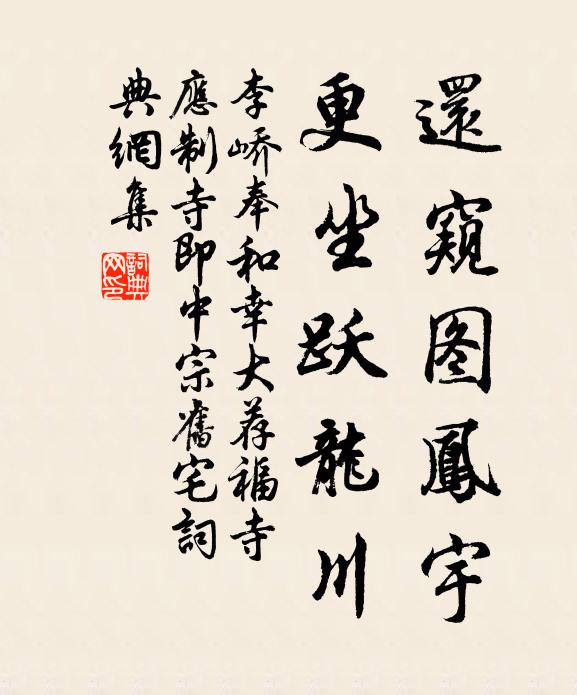 還窺图鳳宇
更坐跃龍川
李峤奉和幸大荐福寺
應制寺即中宗舊宅詞
典網集
詞典网印